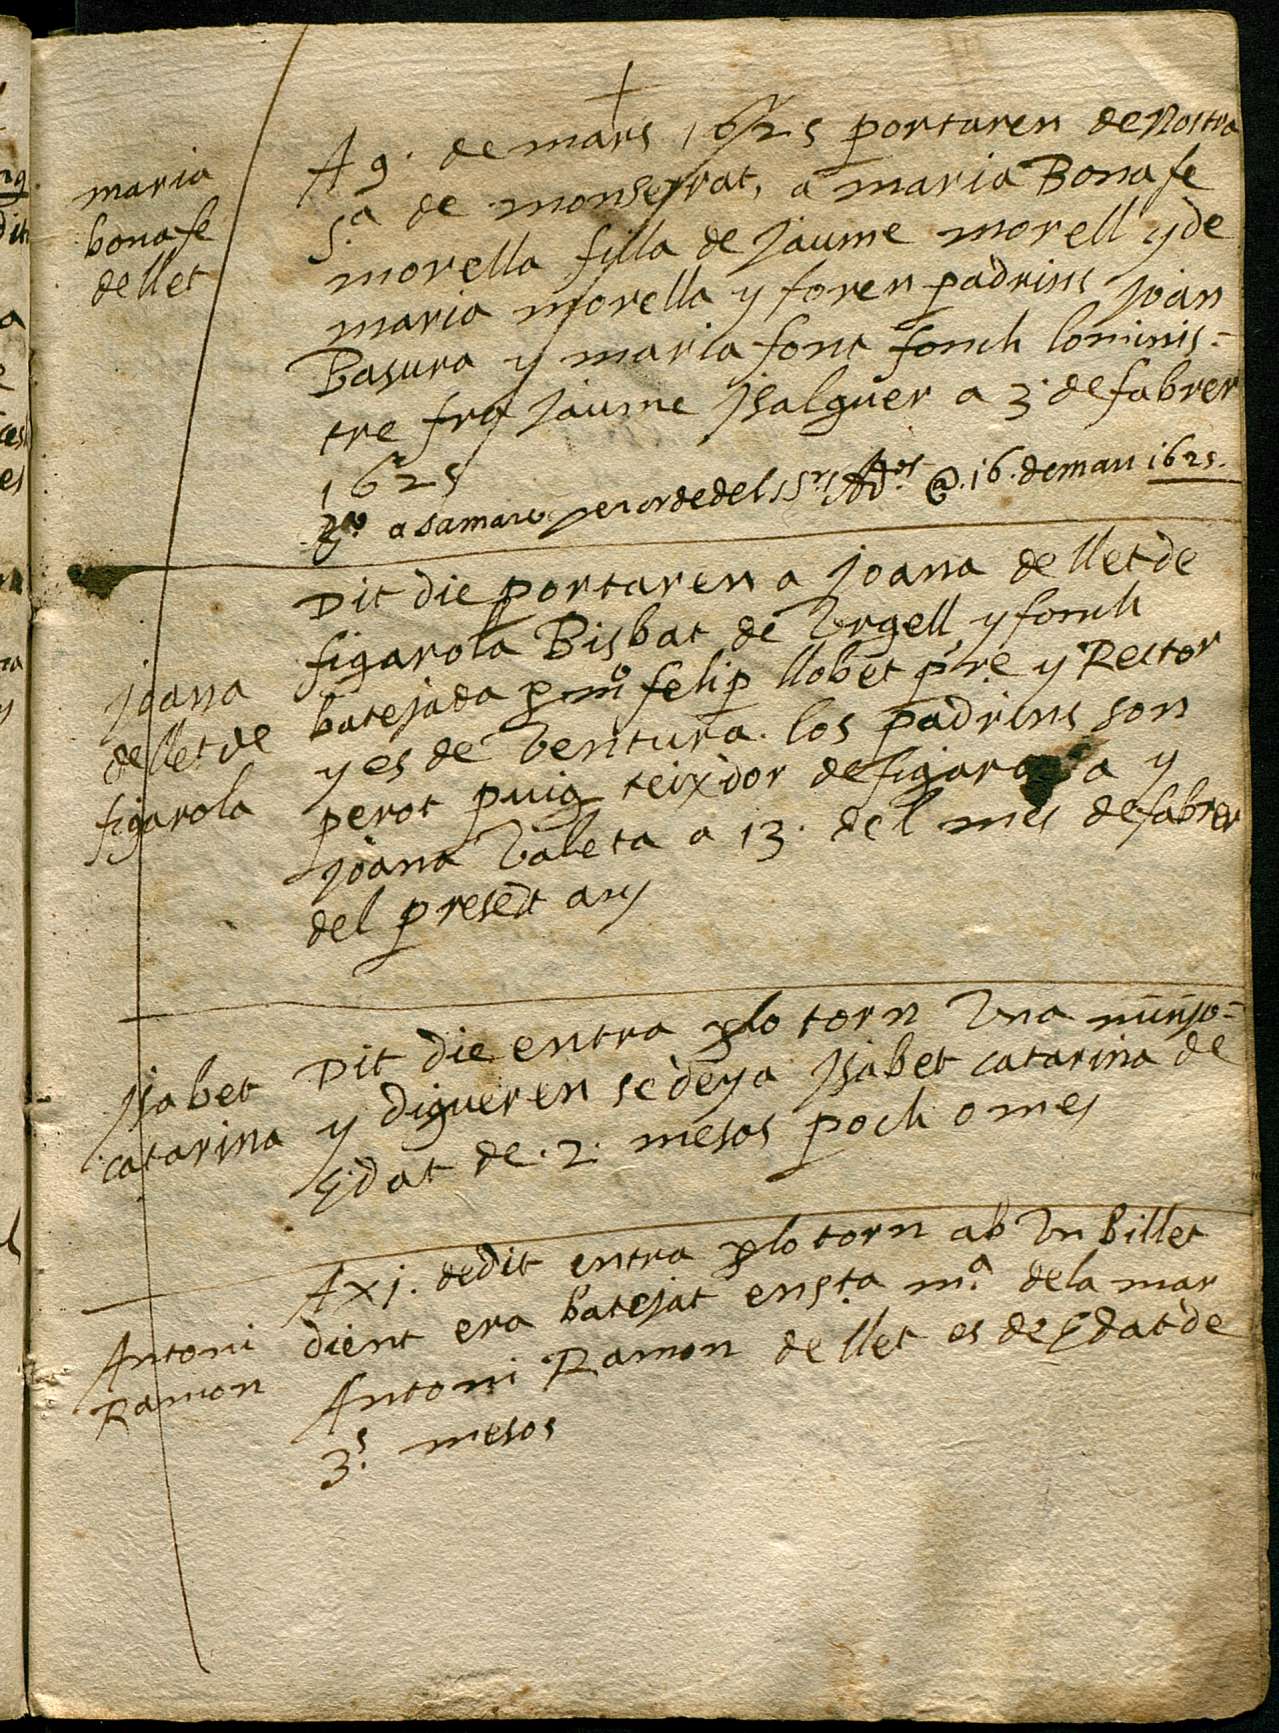 maria
bonafe
de llet
A 9. de mars 1625 portaren de Nostra
S.ª de monserrat, a maria Bonafe
morella filla de Jaume morell y de
maria morella y foren padrins Joan
Basura y maria font fonch lo minis-
tre fra Jaume Jsalguer a 3. de fabrer
1625
a sa mare per orde dels Srs Ad.ors @. 16. de mars 1625.
Joana
de llet de
figarola
Dit die portaren a Joana de llet de
figarola Bisbat de Vrgell y fonch
batejada p m.º felip llobet pre y Rector
y es de Ventura. los padrins son
perot puig teixidor de figarola y
Joana Valeta a 13. del mes de fabrer
del present any
Jsabet
catarina
Dit die entra plo torn Vna minyo-
y digueren se deya Jsabet catarina de
Edat de .2. mesos poch o mes
Antoni
Ramon
A xj. de dit entra plo torn ab Vn billet
dient era batejat en s.ta m.ª de la mar
Antoni Ramon de llet es de Edat de
3.s mesos